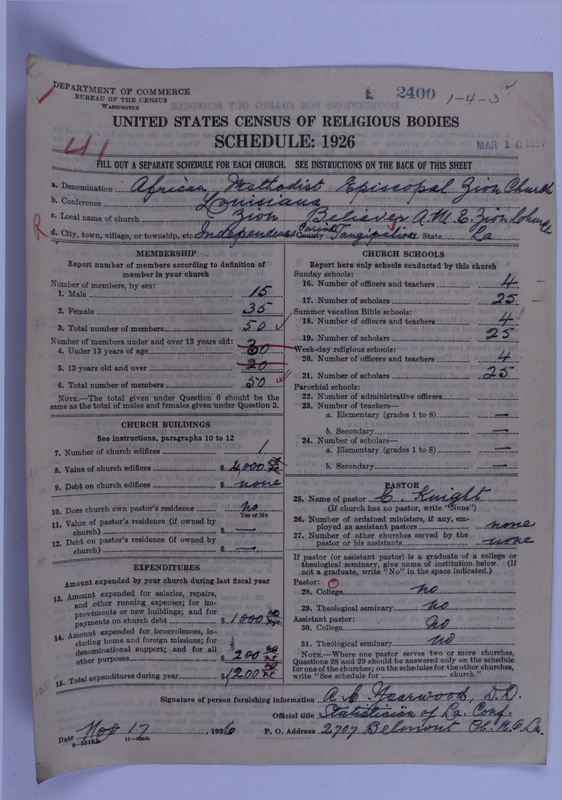 DEPARTMENT OF COMMERCE
BUREAU OF THE CENSUS
WASHINGTON
2400
1-4-3
UNITED STATES CENSUS OF RELIGIOUS BODIES
SCHEDULE: 1926
MAR 16 1927
41
FILL OUT A SEPARATE SCHEDULE FOR EACH CHURCH. SEE INSTRUCTIONS ON THE BACK OF THIS SHEET
a. Denomination African Methodist Episcopal Zion Church
b. Conference Louisiana
c. Local name of church Zion Believer A.M.E. Zion Church
R
d. City, town, village, or township, etc. Independence Parish County Tangipahoa State La
MEMBERSHIP
Report number of members according to definition of member in your church
Number of members, by sex:
1. Male 15
2. Female 35
3. Total number of members 50
Number of members under and over 13 years old:
4. Under 13 years of age
5. 13 years old and over 20
6. Total number of members 50
NOTE.—The total given under Question 6 should be the same as the total of males and females given under Question 3.
CHURCH BUILDINGS
See instructions, paragraphs 10 to 12
7. Number of church edifices 1
8. Value of church edifices $ 4,000
9. Debt on church edifices $ none
10. Does church own pastor's residence? No
Yes or No
11. Value of pastor's residence (if owned by church) $ —
12. Debt on pastor's residence (if owned by church) $ —
EXPENDITURES
Amount expended by your church during last fiscal year
13. Amount expended for salaries, repairs, and other running expenses; for improvements or new buildings; and for payments on church debt $ 1000
14. Amount expended for benevolences, including home and foreign missions; for denominational support; and for all other purposes $ 200
15. Total expenditures during year $ 1200
CHURCH SCHOOLS
Report here only schools conducted by this church
Sunday schools:
16. Number of officers and teachers 4
17. Number of scholars 25
Summer vacation Bible schools:
18. Number of officers and teachers 4
19. Number of scholars 25
Week-day religious schools:
20. Number of officers and teachers 4
21. Number of scholars 25
Parochial schools:
22. Number of administrative officers
23. Number of teachers—
a. Elementary (grades 1 to 8) —
b. Secondary —
24. Number of scholars—
a. Elementary (grades 1 to 8) —
b. Secondary —
PASTOR
25. Name of pastor C. Knight
(If church has no pastor, write "None")
26. Number of ordained ministers, if any, employed as assistant pastors none
27. Number of other churches served by the pastor or his assistants none
If pastor (or assistant pastor) is a graduate of a college or theological seminary, give name of institution below. (If not a graduate, write "No" in the space indicated.)
Pastor:
28. College no
29. Theological seminary no
Assistant pastor:
30. College No
31. Theological seminary no
NOTE.—Where one pastor serves two or more churches, Questions 28 and 29 should be answered only on the schedule for one of the churches; on the schedules for the other churches, write "See schedule for church."
Signature of person furnishing information A C Yearwood, D.D.
Official title Statistician of La. Conf.
Date Nov 17, 1926 P. O. Address 2707 Belmont Pl. N.O. La.